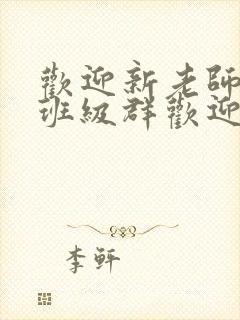 歡迎新老師
班級群歡迎
李軒